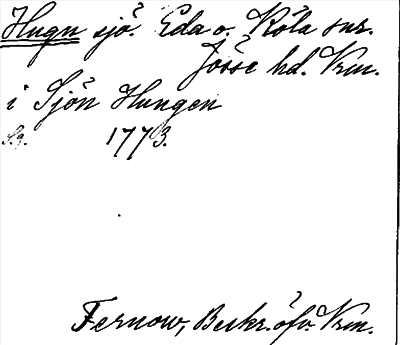 Hugn sjö. Eda o. Köla snr.
Jösse hd. Vrm.
i Sjön Hungen
S.9. 1773.
Fernow, Beskr. öfv. Vrm.